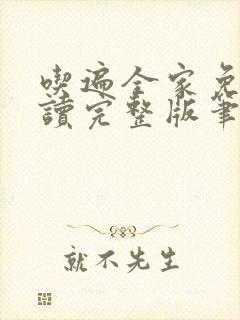 喫遍全家免
讀完整版筆
就不先生